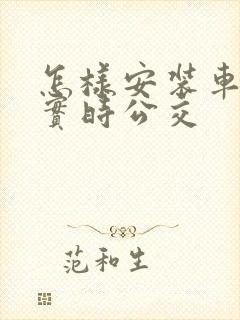 怎樣安裝車
實時公交
范和生